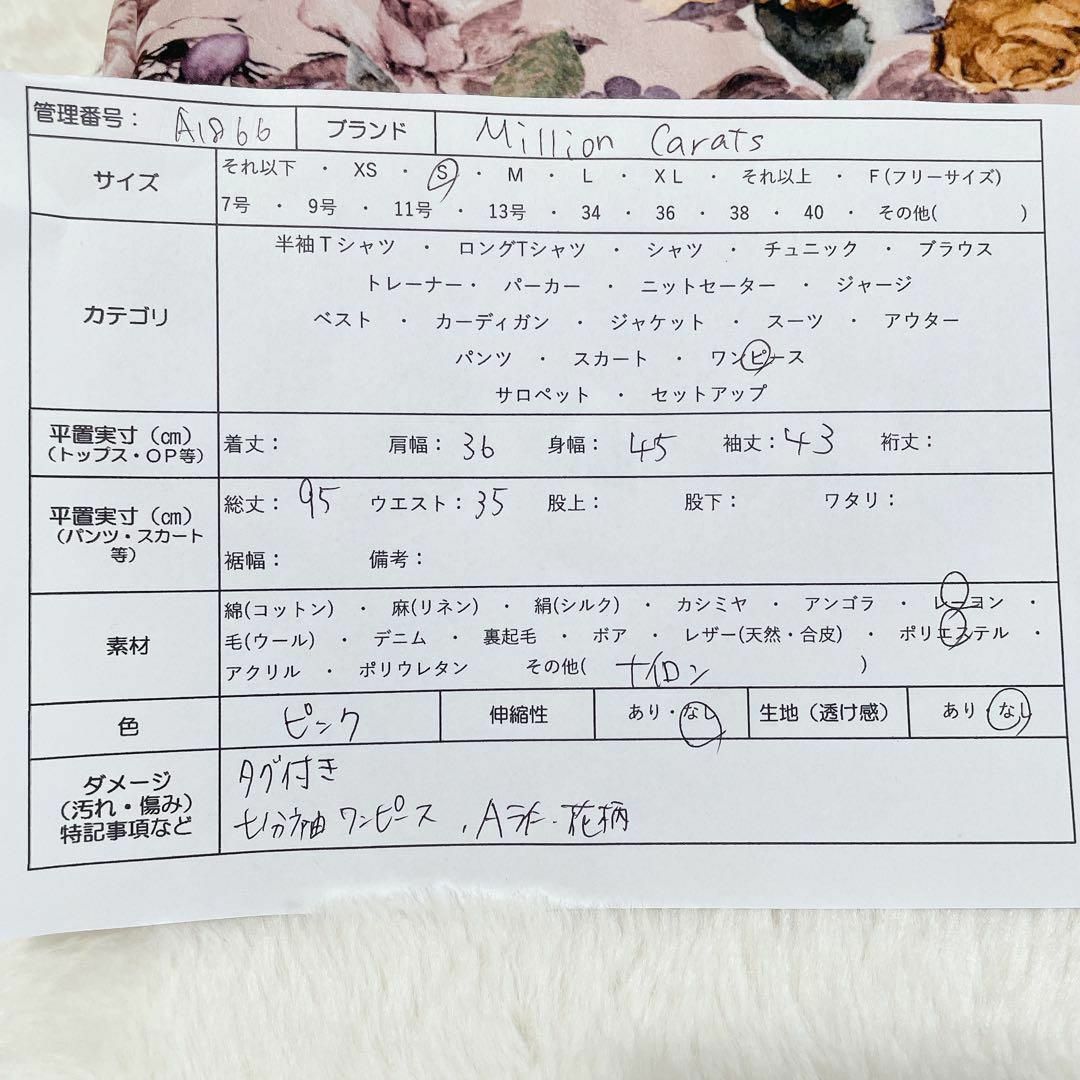 管理番号： A1866 ブランド Million Carats
サイズ
それ以下 ・ XS ・ S ・ M ・ L ・ XL ・ それ以上 ・ F(フリーサイズ)
7号 ・ 9号 ・ 11号 ・ 13号 ・ 34 ・ 36 ・ 38 ・ 40 ・ その他( )
カテゴリ
半袖Tシャツ ・ ロングTシャツ ・ シャツ ・ チュニック ・ ブラウス
トレーナー・ パーカー ・ ニットセーター ・ ジャージ
ベスト ・ カーディガン ・ ジャケット ・ スーツ ・ アウター
パンツ ・ スカート ・ ワンピース
サロペット ・ セットアップ
平置実寸（㎝）
（トップス・OP等）
着丈： 肩幅：36 身幅：45 袖丈：43 裄丈：
平置実寸（㎝）
（パンツ・スカート
等）
総丈：95 ウエスト：35 股上： 股下： ワタリ：
裾幅： 備考：
素材
綿(コットン) ・ 麻(リネン) ・ 絹(シルク) ・ カシミヤ ・ アンゴラ ・ レーヨン ・
毛(ウール) ・ デニム ・ 裏起毛 ・ ボア ・ レザー(天然・合皮) ・ ポリエステル ・
アクリル ・ ポリウレタン その他( ナイロン )
色 ピンク 伸縮性 あり・なし 生地（透け感） あり・なし
ダメージ
（汚れ・傷み）
特記事項など
タグ付き
七分袖ワンピース、Aライン・花柄